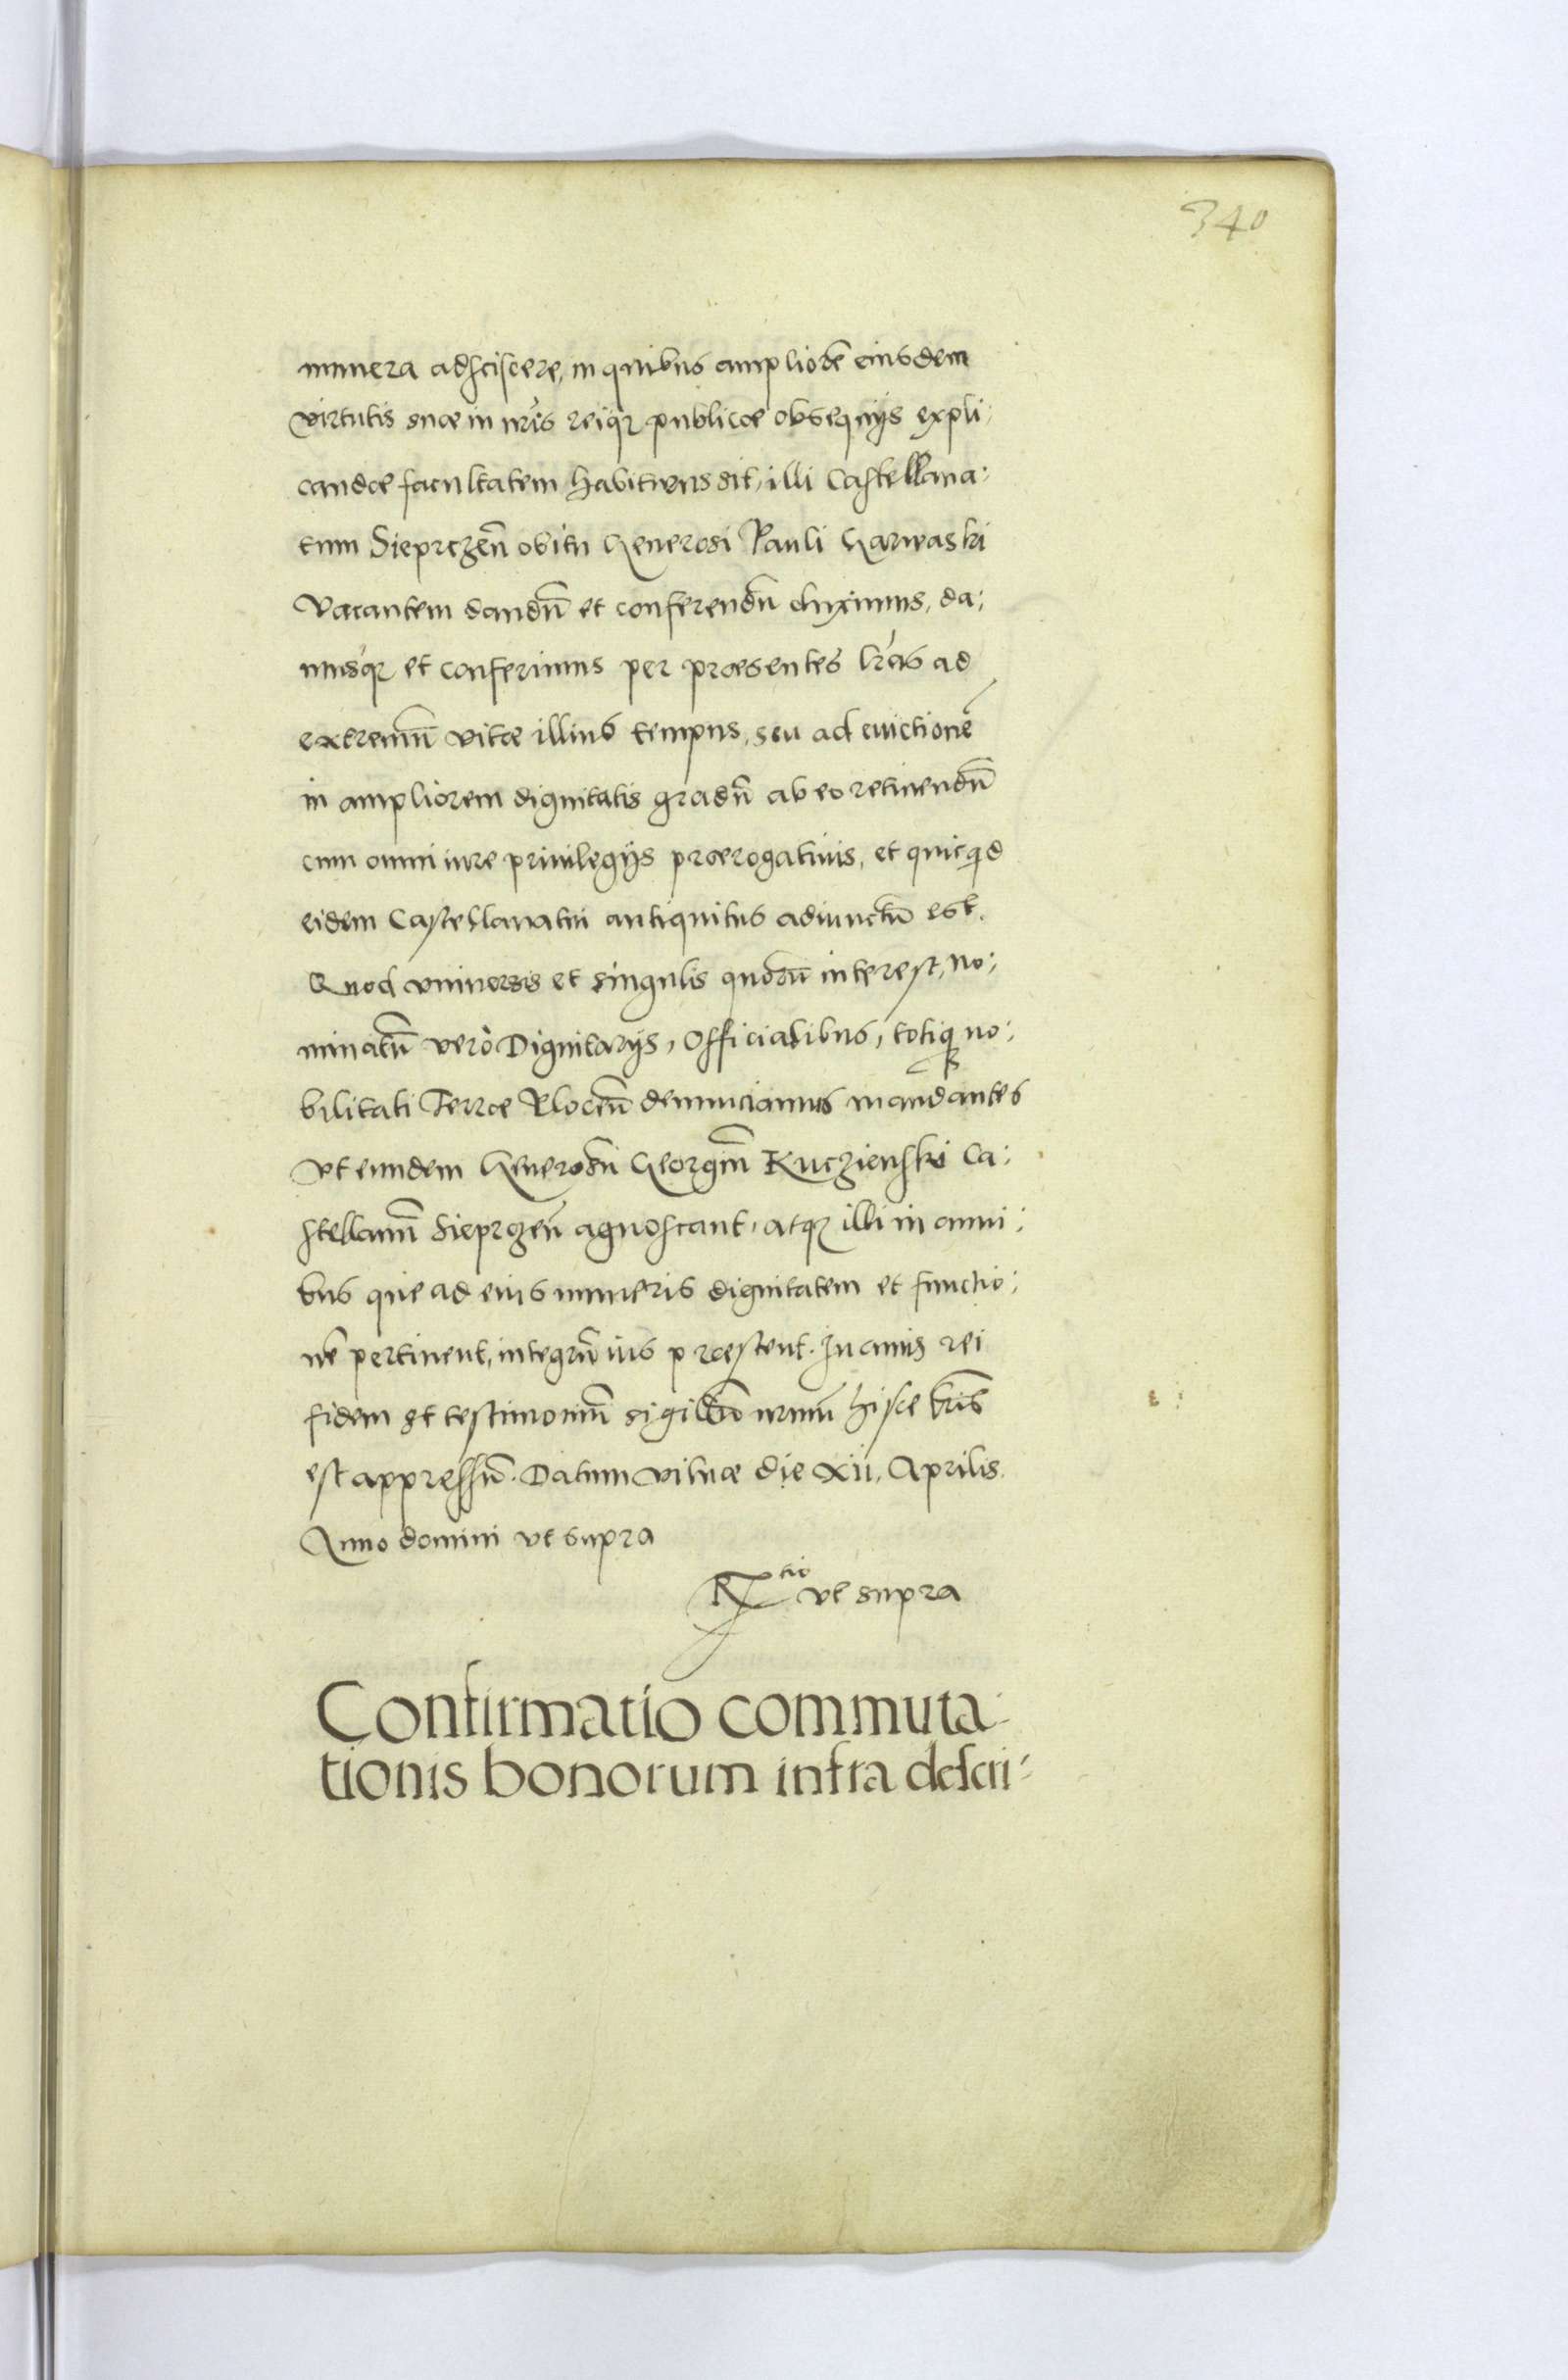 340
munera adsciscere, in quibus ampliorē eiusdem
virtutis suae in nr̄is reiq₃ publicae obsequijs expli:
candae facultatem habiturus sit, illi Castellana:
tum Sieprczeñ obitu Generosi Pauli Garwaski
vacantem dandū et conferendū duximus, da:
musq₃ et conferimus per praesentes lr̄as ad
extremū vitae illius tempus, seu ad euictionē
in ampliorem dignitatis gradū ab eo retinendū
cum omni iure priuilegijs praerogatiuis, et quicqd
eidem Castellanatui antiquitus adiunctū est.
Quod vniuersis et singulis quorū interest, no:
minatū vero Dignitarijs, Officialibus, totiq₃ no:
bilitati Terrae Plocen̄ denunciamus mandantes
vt eundem Generosū Georgiū Kuczienski Ca:
stellanū Sieprczeñ agnoscant, atq₃ illi in omni:
bus que ad eius muneris dignitatem et functio:
nē pertinent, integrū ius praestent. In cuius rei
fidem et testimoniū sigillū nrūm hisce lr̄is
est appressū. Datum Vilnae die xii, Aprilis.
Anno domini vt supra
Rtio vt supra
Confirmatio commuta:
tionis bonorum infra descri: